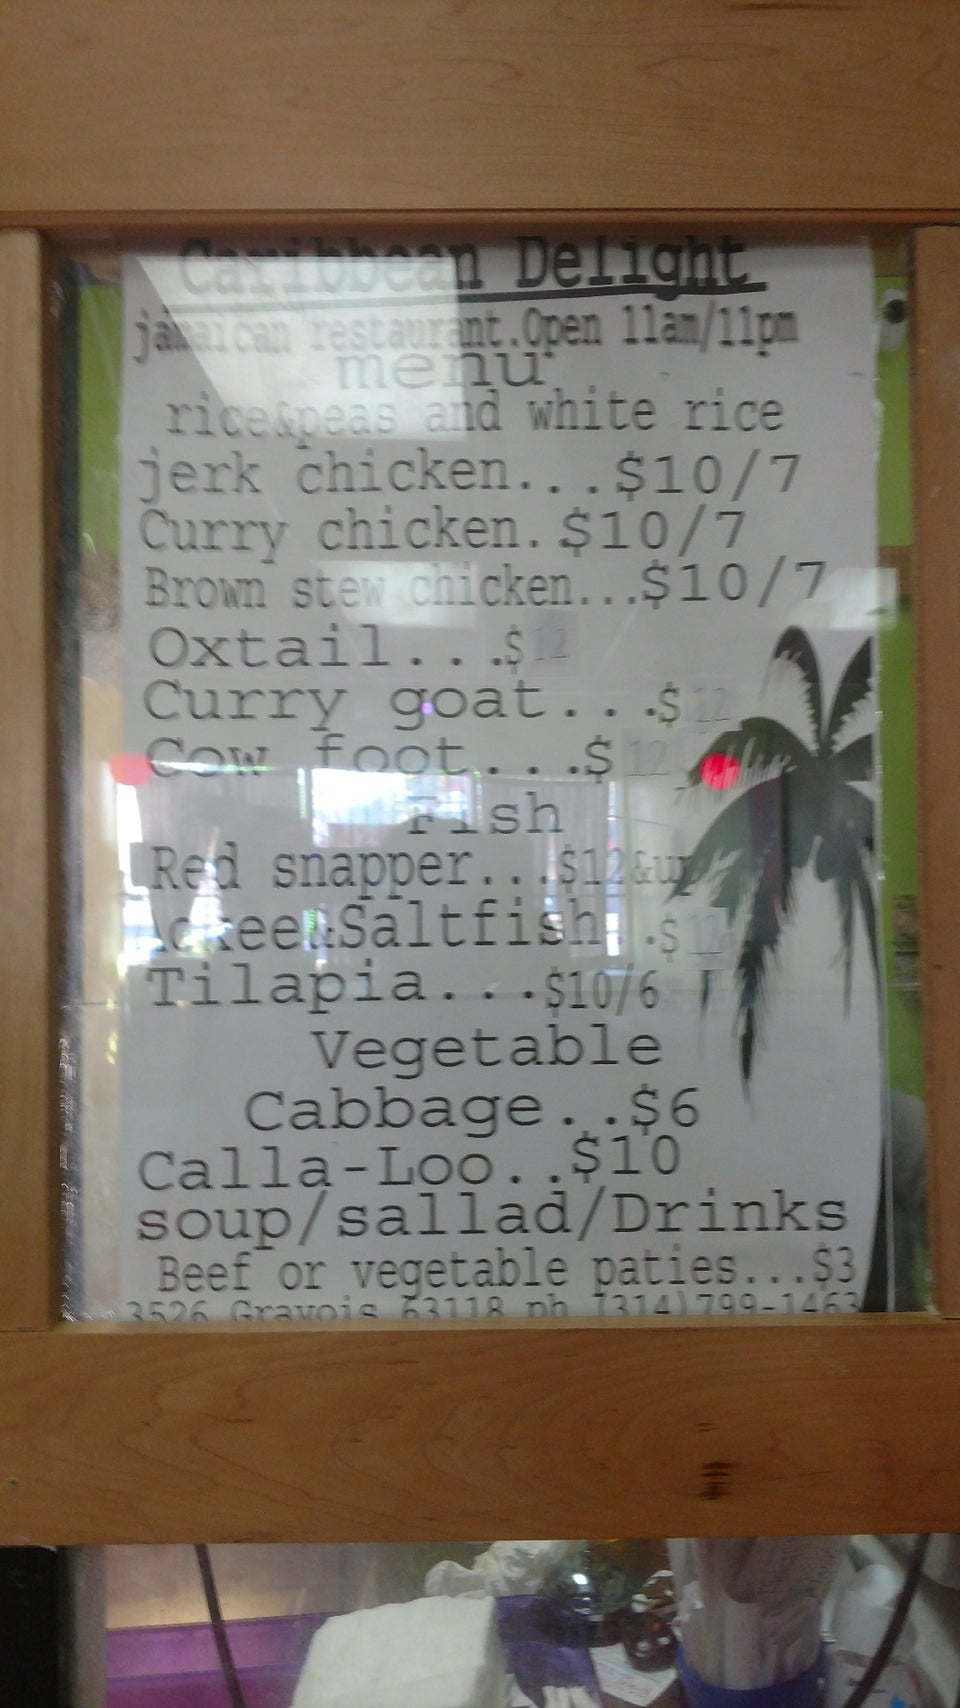 Caribbean Delight
jamaican restaurant.Open 11am/11pm
menu
rice&peas and white rice
jerk chicken...$10/7
Curry chicken.$10/7
Brown stew chicken...$10/7
Oxtail...$12
Curry goat...$12
Cow foot...$12
Fish
Red snapper...$12&up
Ackee&Saltfish..$12
Tilapia...$10/6
Vegetable
Cabbage..$6
Calla-Loo..$10
soup/sallad/Drinks
Beef or vegetable paties...$3
3526 Gravois 63118 ph (314)799-1463